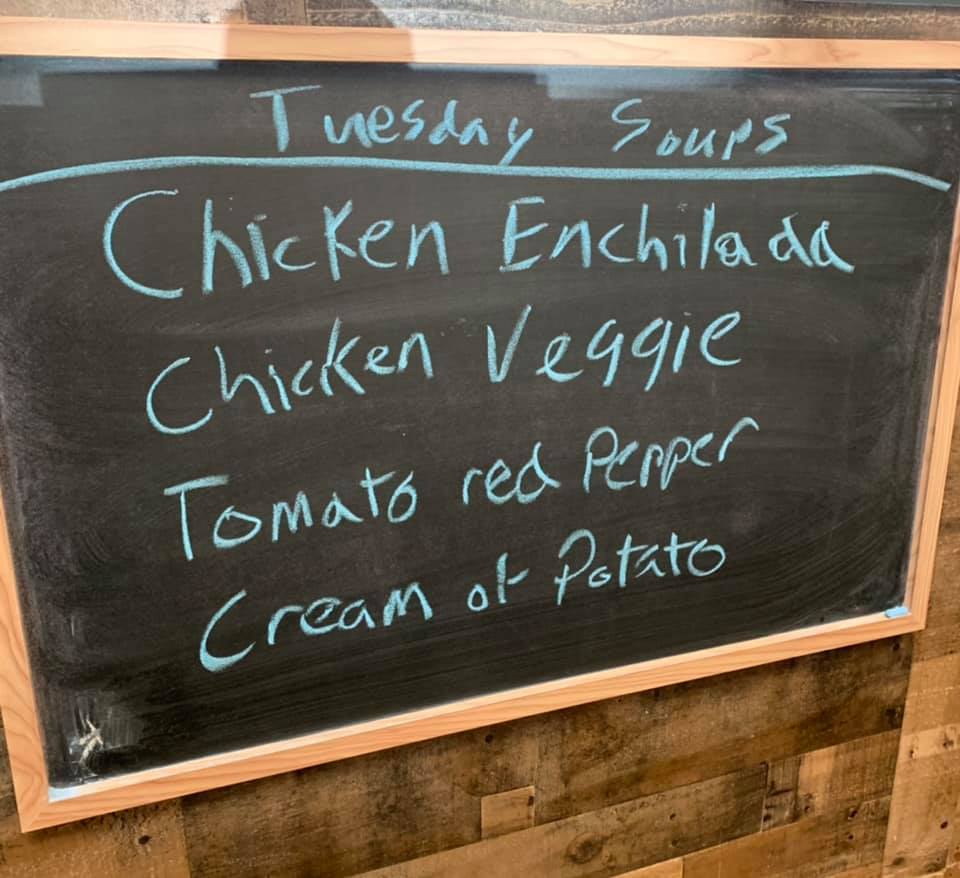 Tuesday Soups
Chicken Enchilada
Chicken Veggie
Tomato red Pepper
Cream of Potato